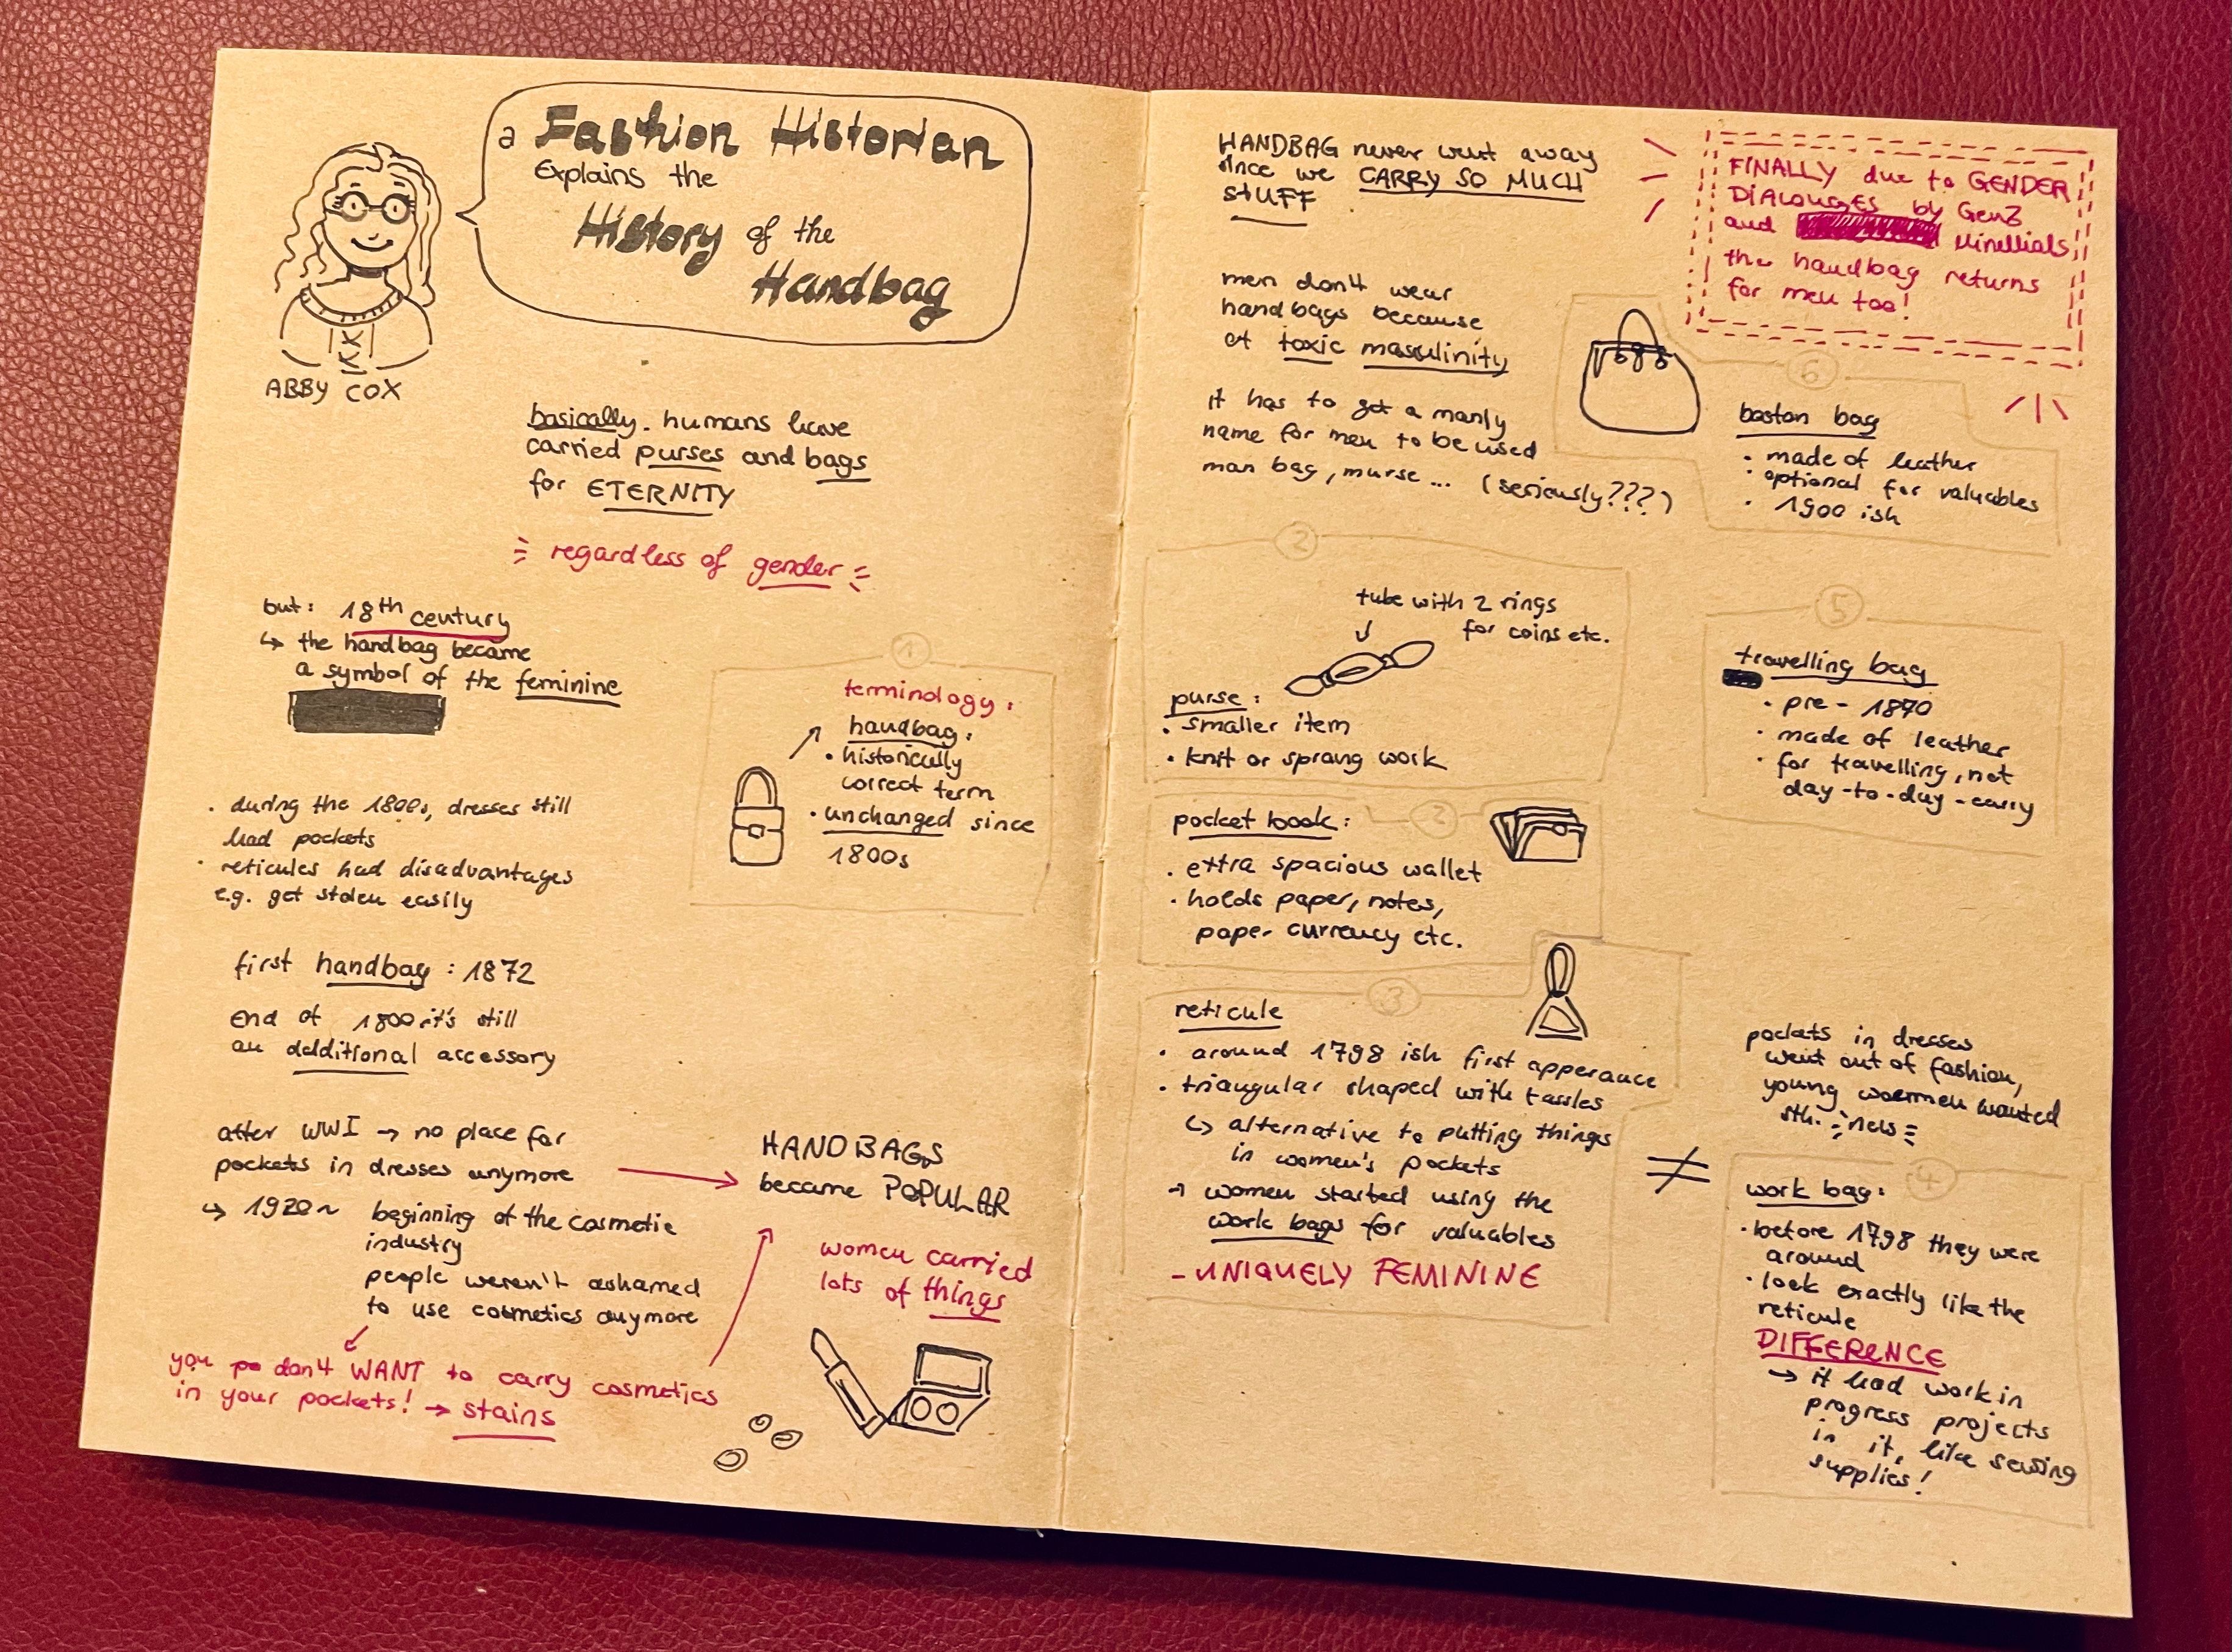 a Fashion Historian
Explains the
History of the
Handbag
ABBY COX
basically. humans have
carried purses and bags
for ETERNITY
regardless of gender
but: 18th century
↳ the handbag became
a symbol of the feminine
1
terminology:
handbag:
• historically
correct term
• unchanged since
1800s
• during the 1800s, dresses still
had pockets
• reticules had disadvantages
e.g. get stolen easily
first handbag: 1872
end of 1800 it's still
an additional accessory
after WWI → no place for
pockets in dresses anymore
↳ 1920~ beginning of the cosmetic
industry
people weren't ashamed
to use cosmetics anymore
you don't WANT to carry cosmetics
in your pockets! → stains
HANDBAGS
became POPULAR
women carried
lots of things
HANDBAG never went away
since we CARRY SO MUCH
STUFF
men don't wear
handbags because
of toxic masculinity
it has to get a manly
name for men to be used
man bag, murse... (seriously???)
FINALLY due to GENDER
DIALOUGES by GenZ
and Minellials
the handbag returns
for men too!
6
boston bag
• made of leather
• optional for valuables
• 1900 ish
2
tube with 2 rings
for coins etc.
purse:
• smaller item
• knit or sprang work
2
pocket book:
• extra spacious wallet
• holds paper, notes,
paper currency etc.
3
reticule
• around 1798 ish first apperance
• triangular shaped with tassles
↳ alternative to putting things
in women's pockets
→ women started using the
work bags for valuables
- UNIQUELY FEMININE
5
travelling bag
• pre - 1870
• made of leather
• for travelling, not
day-to-day-carry
pockets in dresses
went out of fashion,
young woemen wanted
sth. new
≠
4
work bag:
• before 1798 they were
around
• look exactly like the
reticule
DIFFERENCE
→ it had work in
progress projects
in it, like sewing
supplies!